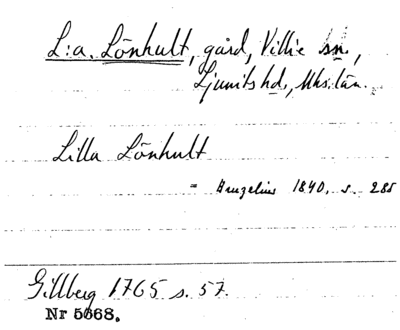 L:a. Lönhult, gård, Villie sn.,
Ljunits hd., Mhs. län.
Lilla Lönhult
= Bruzelius 1840, s. 285
Gillberg 1765 s. 57.
Nr 5668.